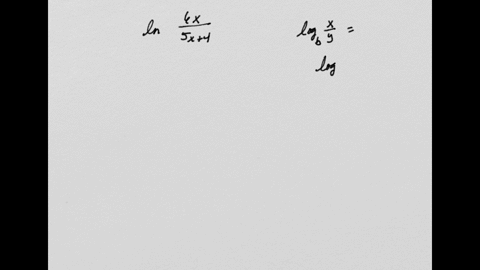 ln 6x/(5x+4)
log_b x/y =
log